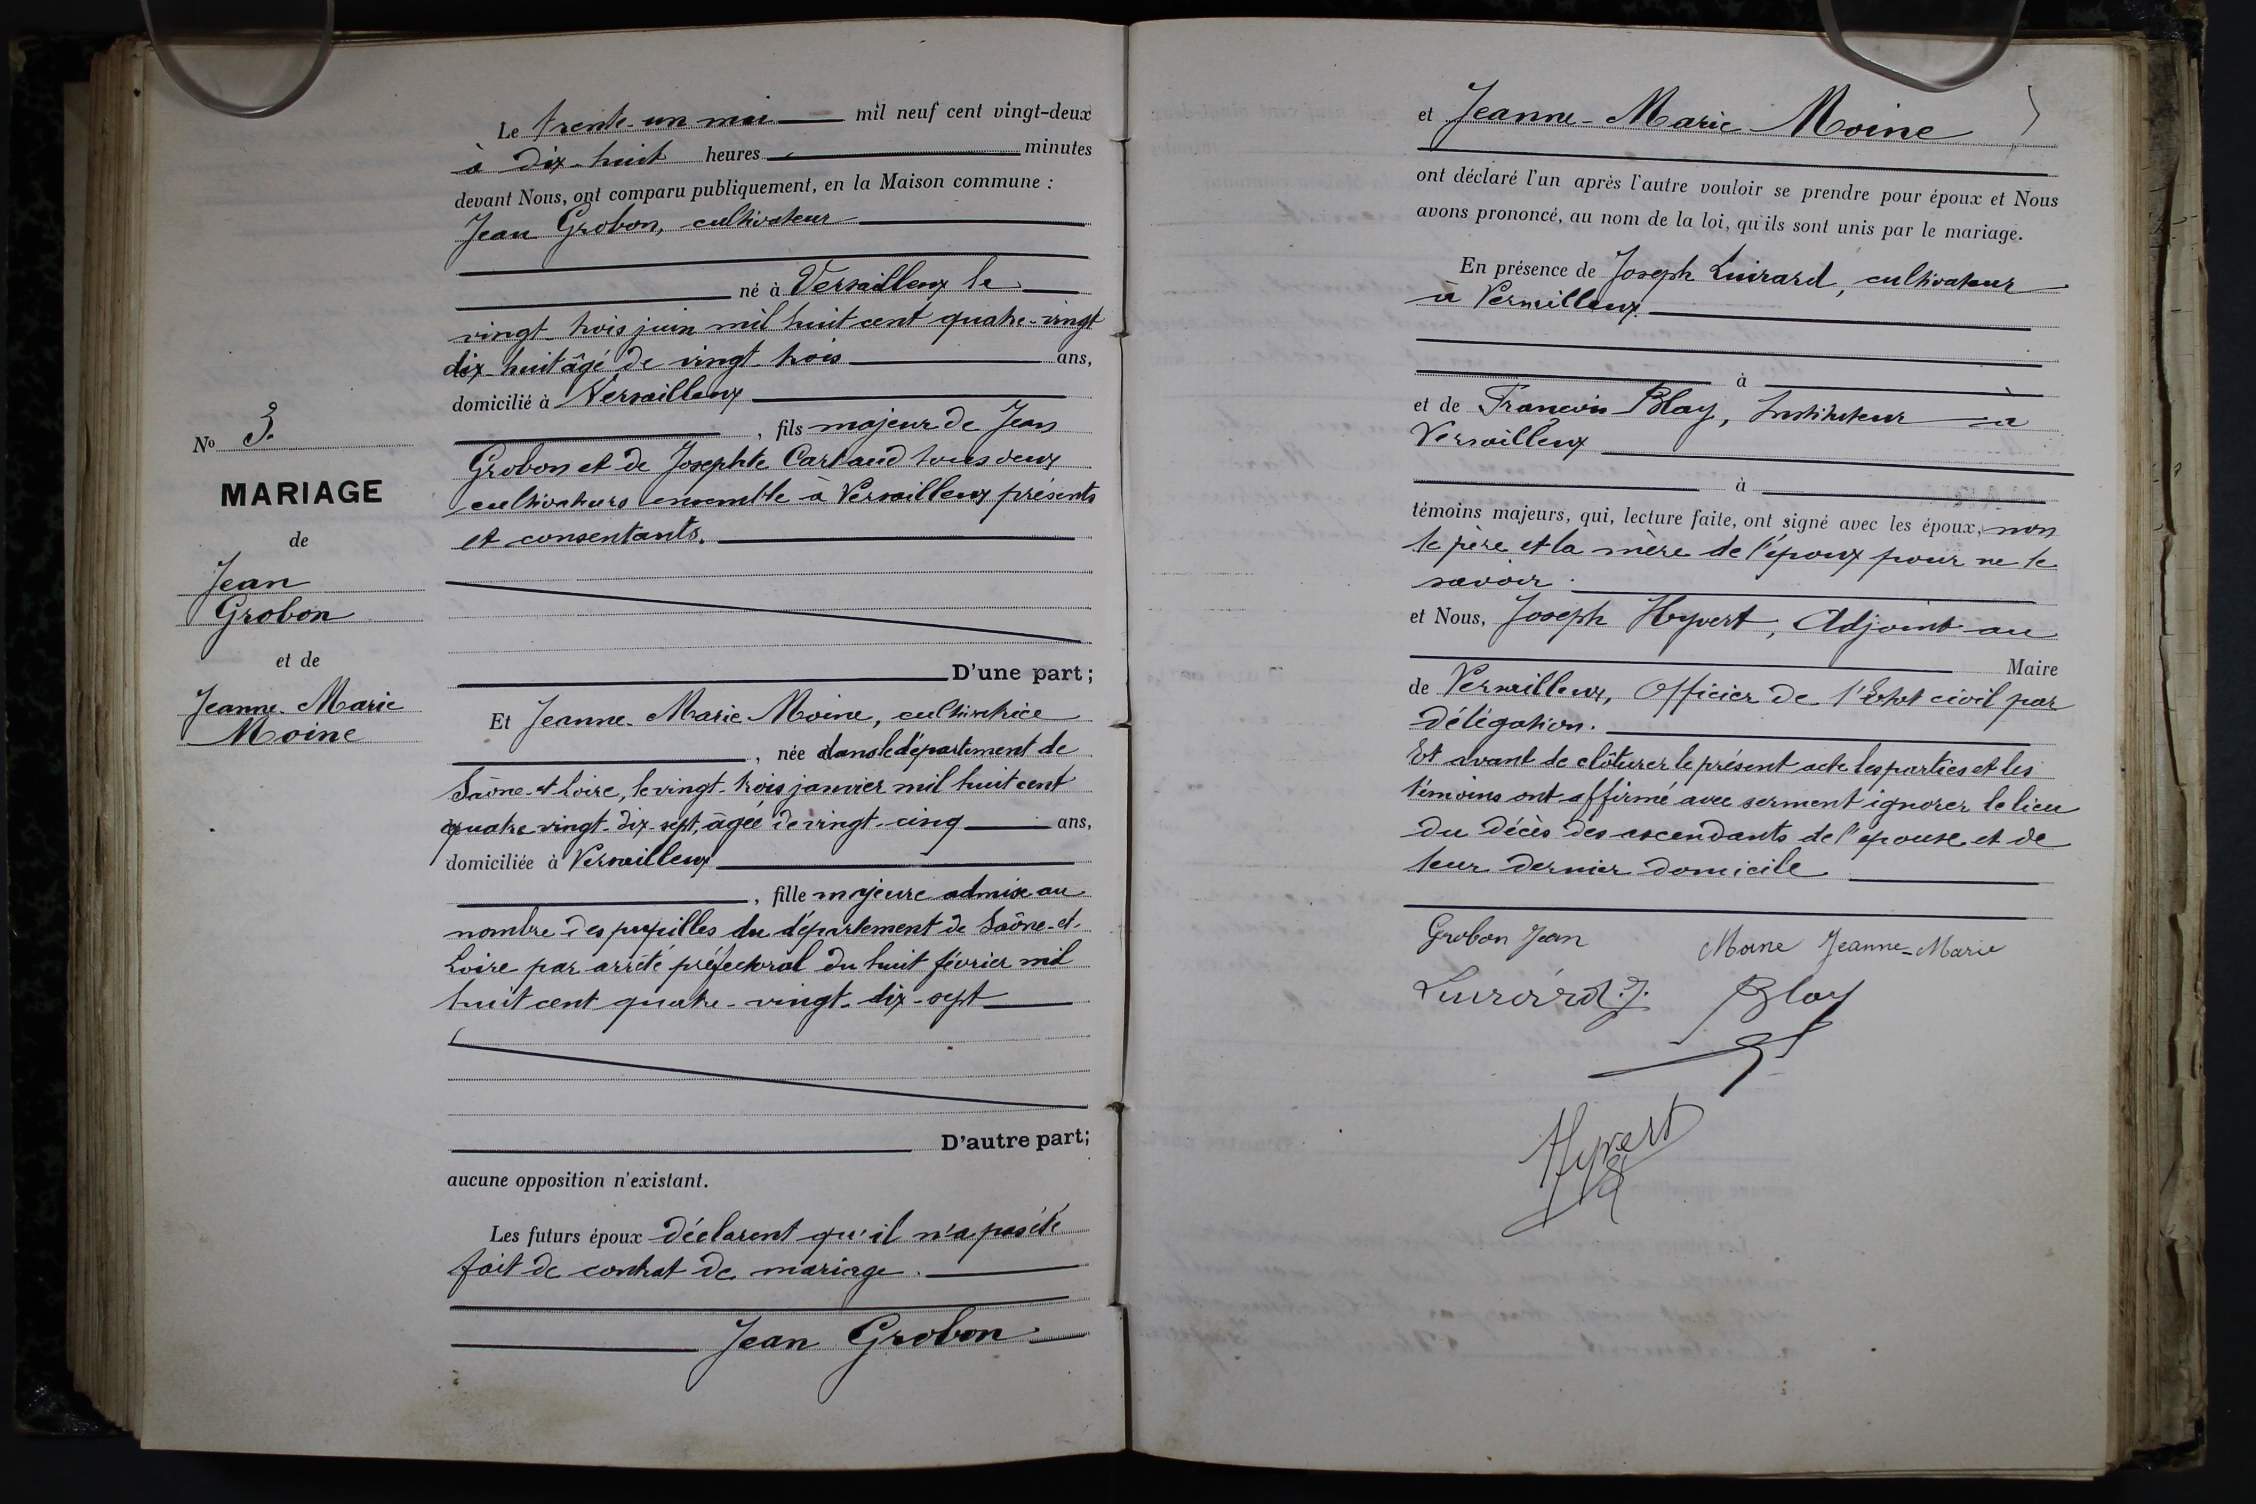 Le trente-un mai mil neuf cent vingt-deux
à dix-huit heures minutes
devant Nous, ont comparu publiquement, en la Maison commune :
Jean Grobon, cultivateur
né à Versailleux le
vingt-trois juin mil huit cent quatre-vingt
dix-huit âgé de vingt-trois ans,
domicilié à Versailleux
, fils majeur de Jean
Grobon et de Josephte Cartaud tous deux
cultivateurs ensemble à Versailleux présents
et consentants.
No 3.
MARIAGE
de
Jean
Grobon
et de
Jeanne-Marie
Moine
D'une part ;
Et Jeanne-Marie Moine, cultivatrice
, née dans le département de
Saône-et-Loire, le vingt-trois janvier mil huit cent
quatre vingt-dix-sept, âgée de vingt-cinq ans,
domiciliée à Versailleux
, fille majeure admise au
nombre des pupilles du département de Saône-et-
Loire par arrêté préfectoral du huit février mil
huit cent quatre-vingt-dix-sept
D'autre part ;
aucune opposition n'existant.
Les futurs époux déclarent qu'il n'a pas été
fait de contrat de mariage.
Jean Grobon
et Jeanne-Marie Moine
ont déclaré l'un après l'autre vouloir se prendre pour époux et Nous
avons prononcé, au nom de la loi, qu'ils sont unis par le mariage.
En présence de Joseph Luirard, cultivateur
à Versailleux
à
et de François Blay, Instituteur à
Versailleux
à
témoins majeurs, qui, lecture faite, ont signé avec les époux, non
le père et la mère de l'époux pour ne le
savoir.
et Nous, Joseph Hyvert, Adjoint au
Maire
de Versailleux, Officier de l'Etat civil par
délégation.
Et avant de clôturer le présent acte les parties et les
témoins ont affirmé avec serment ignorer le lieu
du décès des ascendants de l'épouse et de
leur dernier domicile
Grobon Jean Moine Jeanne-Marie
Luirard J. Blay
Hyvert